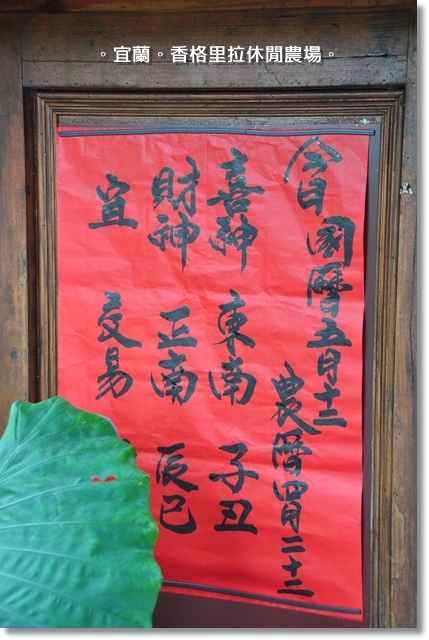 。宜蘭。香格里拉休閒農場。
今日國曆五月十二
農曆四月二十二
喜神 東南 子丑
財神 正南 辰巳
宜 交易